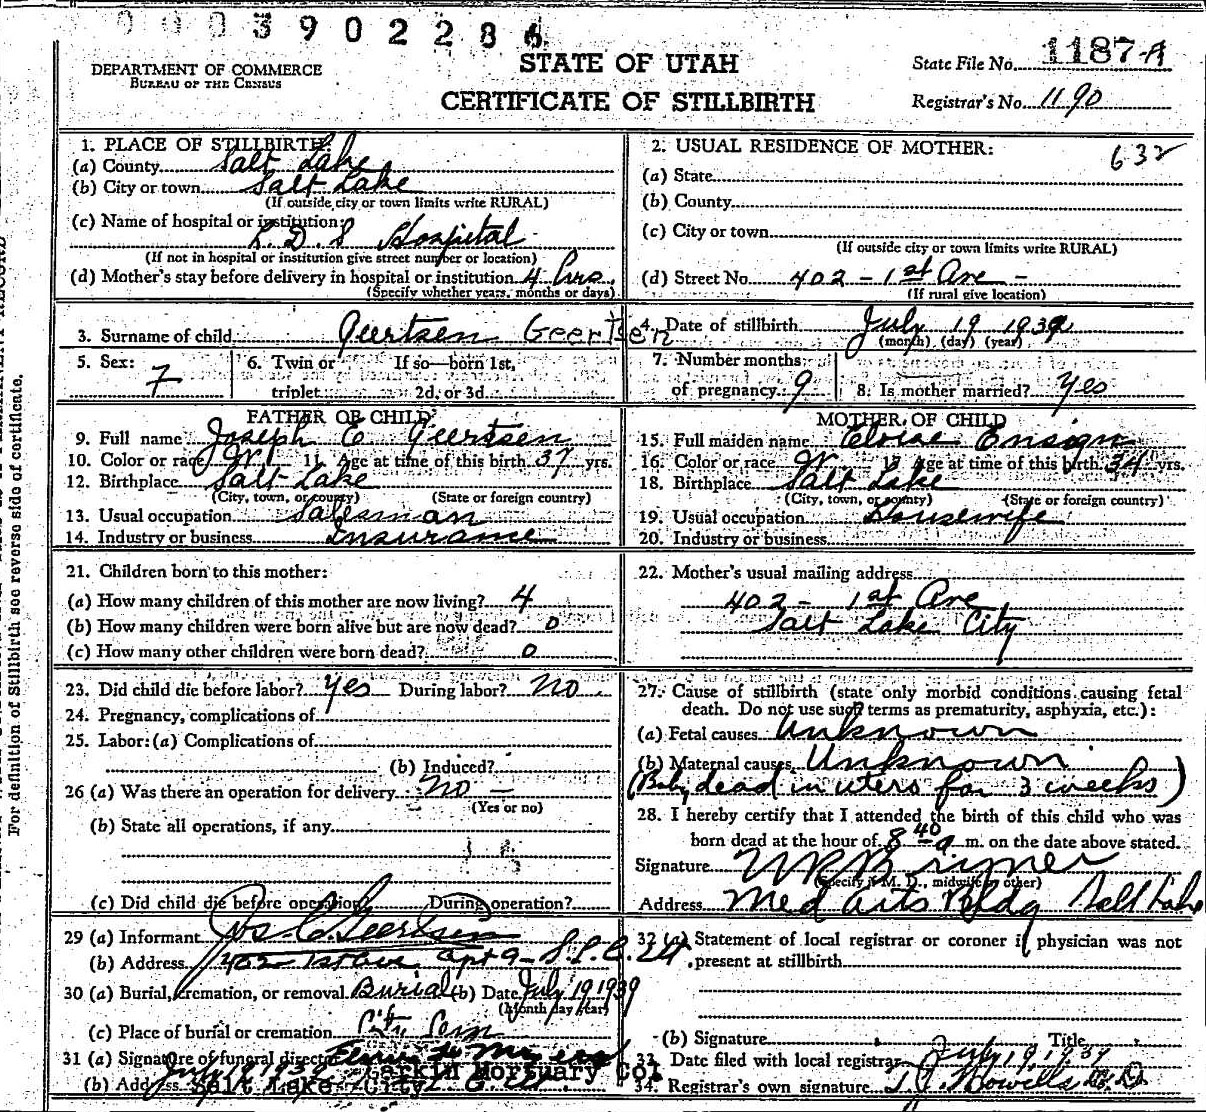 0003902286
STATE OF UTAH
CERTIFICATE OF STILLBIRTH
DEPARTMENT OF COMMERCE
BUREAU OF THE CENSUS
State File No. 1187-A
Registrar's No. 1190
1. PLACE OF STILLBIRTH:
(a) County Salt Lake
(b) City or town Salt Lake
(If outside city or town limits write RURAL)
(c) Name of hospital or institution:
L.D.S Hospital
(If not in hospital or institution give street number or location)
(d) Mother's stay before delivery in hospital or institution 4 hrs.
(Specify whether years, months or days)
2. USUAL RESIDENCE OF MOTHER: 632
(a) State
(b) County
(c) City or town
(If outside city or town limits write RURAL)
(d) Street No. 402 - 1st Ave -
(If rural give location)
3. Surname of child Geertsen Geertsen
4. Date of stillbirth July 19 1939
(month) (day) (year)
5. Sex: 7
6. Twin or triplet
If so—born 1st, 2d, or 3d
7. Number months of pregnancy 9
8. Is mother married? Yes
FATHER OF CHILD
9. Full name Joseph E Geertsen
10. Color or race W. 11. Age at time of this birth 37 yrs.
12. Birthplace Salt Lake
(City, town, or county) (State or foreign country)
13. Usual occupation Salesman
14. Industry or business Insurance
MOTHER OF CHILD
15. Full maiden name Eloise Ensign
16. Color or race W 17 Age at time of this birth 34 yrs.
18. Birthplace Salt Lake
(City, town, or county) (State or foreign country)
19. Usual occupation Housewife
20. Industry or business
21. Children born to this mother:
(a) How many children of this mother are now living? 4
(b) How many children were born alive but are now dead? 0
(c) How many other children were born dead? 0
22. Mother's usual mailing address
402 - 1st Ave
Salt Lake City
23. Did child die before labor? Yes During labor? No
24. Pregnancy, complications of
25. Labor: (a) Complications of
(b) Induced?
26 (a) Was there an operation for delivery No -
(Yes or no)
(b) State all operations, if any
(c) Did child die before operation During operation?
27. Cause of stillbirth (state only morbid conditions causing fetal
death. Do not use such terms as prematurity, asphyxia, etc.):
(a) Fetal causes Unknown
(b) Maternal causes Unknown
(Baby dead in utero for 3 weeks)
28. I hereby certify that I attended the birth of this child who was
born dead at the hour of 8 40 a m. on the date above stated.
Signature
(Specify if M. D., midwife or other)
Address Med Arts Bldg Salt Lake
29 (a) Informant Jos E Geertsen
(b) Address 402 1st Ave Apt 9 - S.L.C.
30 (a) Burial, cremation, or removal Burial (b) Date July 19 1939
(Month day year)
(c) Place of burial or cremation City Cem
31 (a) Signature of funeral director
Larkin Mortuary Co.
(b) Address Salt Lake City
32 (a) Statement of local registrar or coroner if physician was not
present at stillbirth
(b) Signature Title
33. Date filed with local registrar July 19, 1939
34. Registrar's own signature
For definition of Stillbirth see reverse side of certificate.